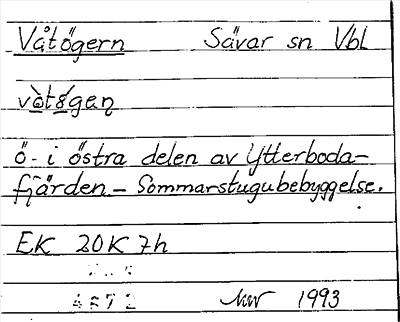 Våtögern Sävar sn Vbl
ö - i östra delen av Ytterboda-
fjärden - Sommarstugubebyggelse.
EK 20K 7h
4872 1993